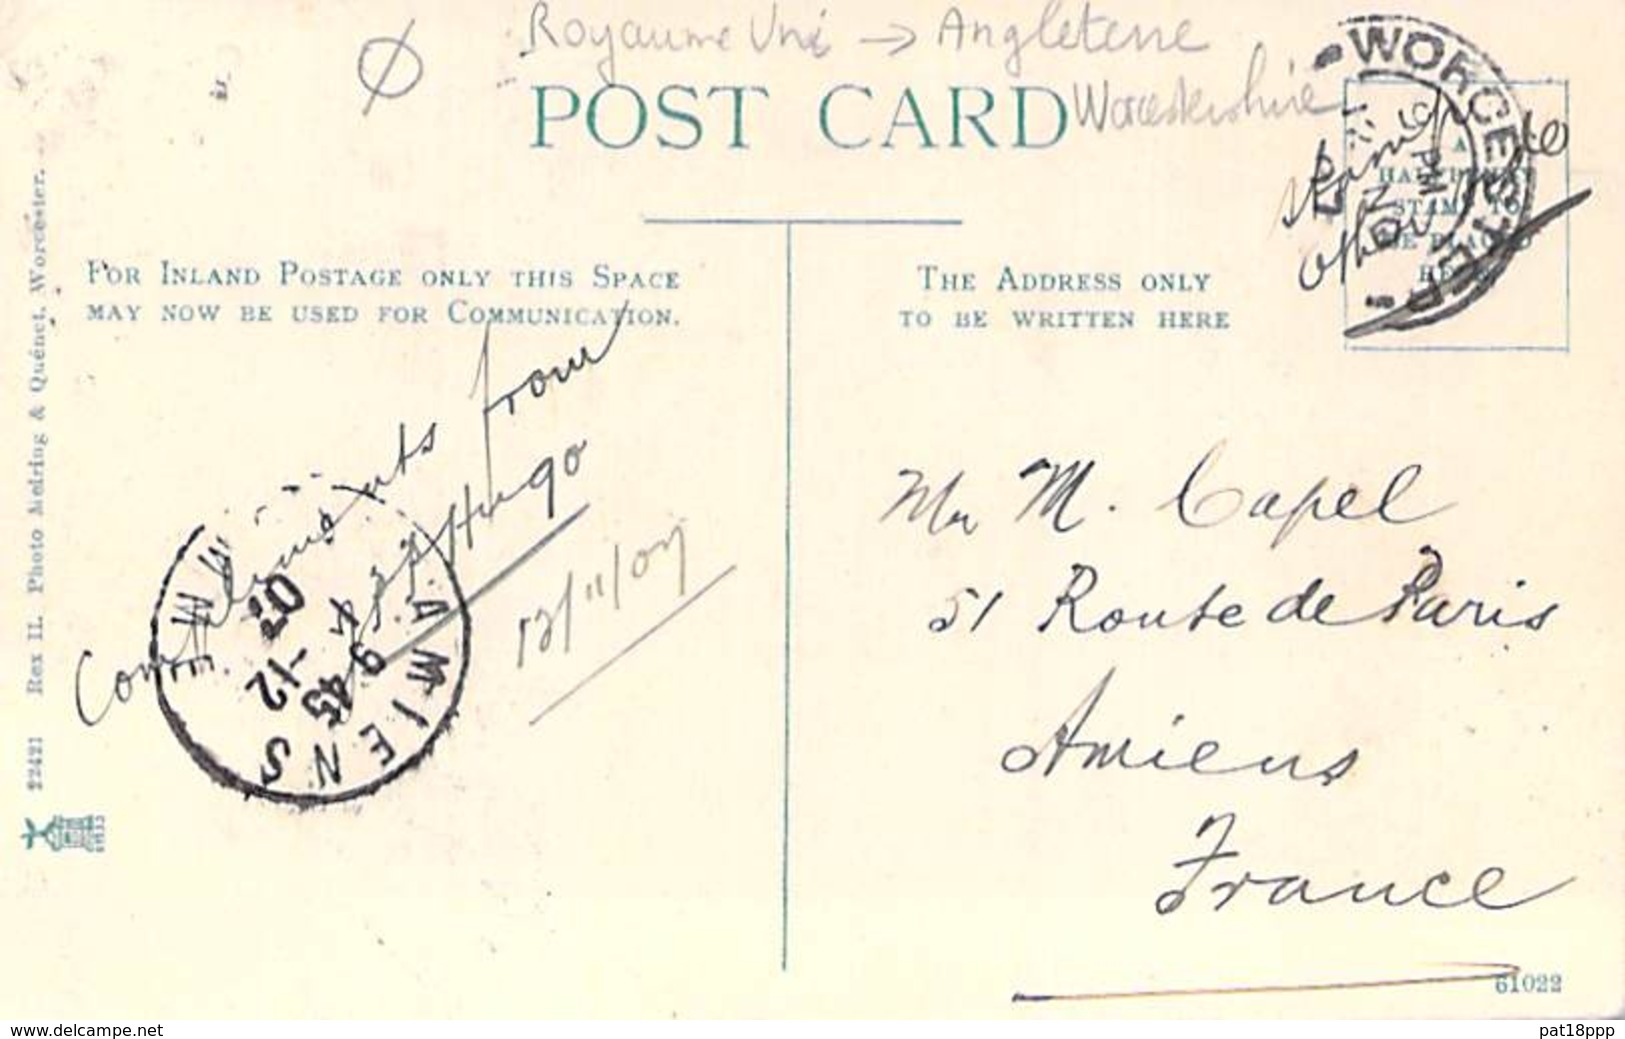 Royaume Uni → Angleterre
Worcestershire
POST CARD
WORCESTER
PM
NO
07
Stamp
other side
A
HALFPENNY
STAMP TO
BE PLACED
HERE
FOR INLAND POSTAGE ONLY THIS SPACE
MAY NOW BE USED FOR COMMUNICATION.
THE ADDRESS ONLY
TO BE WRITTEN HERE
Compliments from
Hugo
12/11/07
AMIENS
9 45
-12
07
Mr M. Capel
51 Route de Paris
Amiens
France
22421 Rex II. Photo Melring & Quénet, Worcester.
61022
www.delcampe.net
pat18ppp